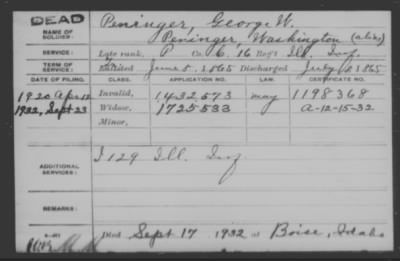 DEAD
NAME OF SOLDIER:
Peninger, George W.
Peninger, Washington (alias)
SERVICE:
Late rank, P Co. C, 16 Reg't Ill. Inf.
TERM OF SERVICE:
Enlisted June 5, 1865 Discharged July 8 1865
DATE OF FILING. CLASS. APPLICATION NO. LAW. CERTIFICATE NO.
1920 Apr 12 Invalid, 1432573 may 1198368
1932, Sept 23 Widow, 1725533 A-12-15-32
Minor,
ADDITIONAL SERVICES:
I 129 Ill. Inf.
REMARKS:
Died Sept 17 1932 at Boise, Idaho